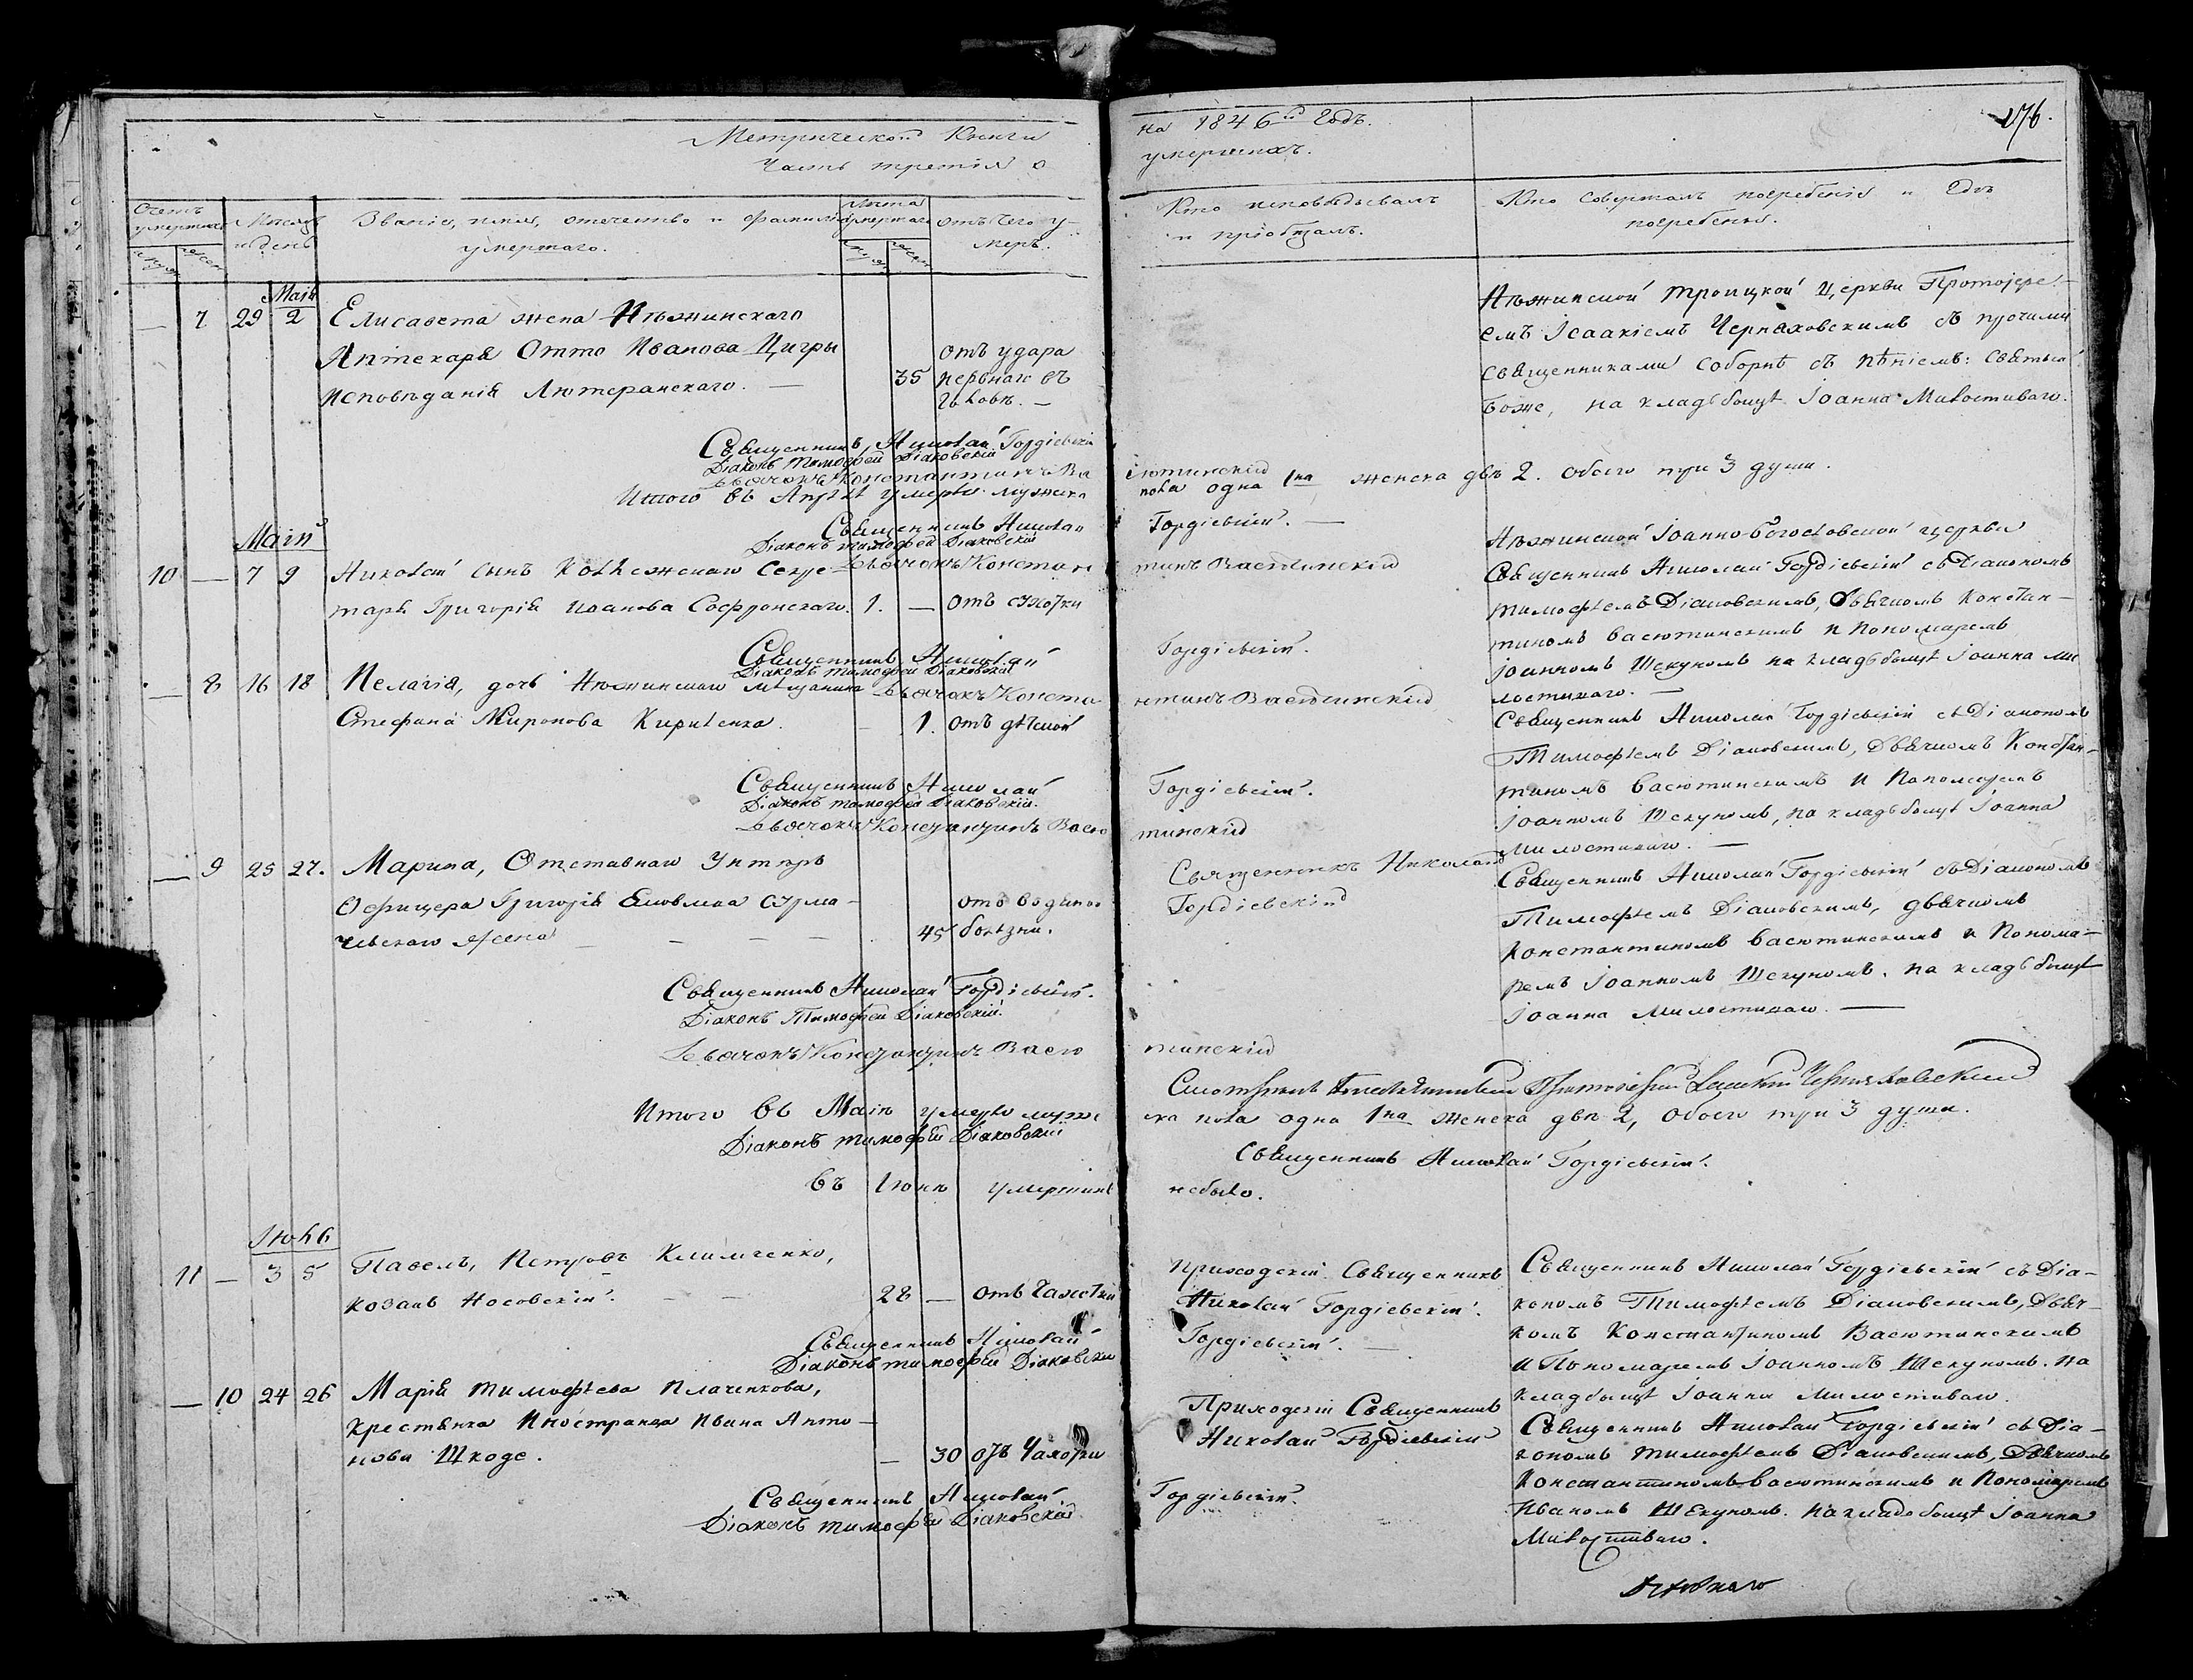 Метрической Книги
Часть третія о
на 1846й Годъ.
умершихъ.
176.
Счетъ умершихъ
Мѣсяцъ и день
Званіе, имя, отечество и фамилія умершаго.
Лѣта умершаго
отъ чего умеръ.
Кто исповѣдывалъ и пріобщалъ.
Кто совершалъ погребеніе и гдѣ погребены.
Маія
— 7 29 2 Елисавета жена Нѣжинскаго
Аптекаря Отто Иванова Цигры
исповѣданія Лютеранскаго. —
35 отъ удара
нервнаго въ
голову. —
Нѣжинской Троицкой Церкви Протоіере-
емъ Ісаакіемъ Черняховскимъ съ прочими
священниками соборнѣ съ пѣніемъ: Святый
Боже, на кладбищѣ Іоанна Милостиваго.
Священникъ Николай Гордіевскій
Діаконъ Тимофей Діаковскій
Дьячокъ Константинъ Васютинскій
Итого въ Апрѣлѣ умерло мужеска пола одна 1на женска двѣ 2. обоего три 3 души.
Маій
Священникъ Николай Гордіевскій. —
Діаконъ Тимофей Діаковскій
Дьячокъ Константинъ Васютинскій
10 — 7 9 Николай сынъ Коллежскаго Секре-
таря Григорія Иванова Софронскаго. 1. — отъ сухотки
Нѣжинской Іоанно-Богословской церкви
Священникъ Николай Гордіевскій съ Діакономъ
Тимофѣемъ Діаковскимъ, Дьячкомъ Констан-
тиномъ Васютинскимъ и Пономаремъ
Іоанномъ Шекуномъ на кладбищѣ Іоанна Ми
лостиваго. —
Священникъ Николай Гордіевскій.
Діаконъ Тимофей Діаковскій
Дьячокъ Константинъ Васютинскій
— 8 16 18 Пелагія, дочь Нѣжинскаго мѣщанина
Стефана Миронова Кириленка. — 1. отъ дѣтской
Священникъ Николай Гордіевскій съ Діакономъ
Тимофѣемъ Діаковскимъ, Дьячкомъ Констан-
тиномъ Васютинскимъ и Пономаремъ
Іоанномъ Шекуномъ, на кладбищѣ Іоанна
Милостиваго. —
Священникъ Николай Гордіевскій.
Діаконъ Тимофей Діаковскій.
Дьячокъ Константинъ Васютинскій
— 9 25 27. Марина, Отставнаго Унтеръ
Офицера Григорія
жена — — — — 45 отъ водяной
болѣзни.
Священникъ Николай
Гордіевскій
Священникъ Николай Гордіевскій съ Діакономъ
Тимофѣемъ Діаковскимъ, дьячкомъ
Константиномъ Васютинскимъ и Понома-
ремъ Іоанномъ Шекуномъ. на кладбищѣ
Іоанна Милостиваго. —
Священникъ Николай Гордіевскій.
Діаконъ Тимофей Діаковскій.
Дьячокъ Константинъ Васютинскій
Протоіерей Черняховскій
Итого въ Маіѣ умерло мужеска пола одна 1на женска двѣ 2, обоего три 3 души.
Діаконъ Тимофей Діаковскій
Священникъ Николай Гордіевскій.
Въ Іюнѣ умершихъ небыло.
Іюль
11 — 3 5 Павелъ, Петровъ Климченко,
козакъ Носовскій. — — 28 — отъ Чахотки
Приходскій Священникъ
Николай Гордіевскій.
Священникъ Николай Гордіевскій съ Діа-
кономъ Тимофѣемъ Діаковскимъ, Дьяч-
комъ Константиномъ Васютинскимъ
и Пономаремъ Іоанномъ Шекуномъ. на
кладбищѣ Іоанна Милостиваго.
Священникъ Николай Гордіевскій. —
Діаконъ Тимофей Діаковскій
— 10 24 26 Марія Тимофѣева Плаченкова,
крестьянка Иностранца Ивана Анто-
нова Шкоде. — 30 отъ Чахотки
Приходскій Священникъ
Николай Гордіевскій
Священникъ Николай Гордіевскій съ Діа-
кономъ Тимофѣемъ Діаковскимъ, Дьячкомъ
Константиномъ Васютинскимъ и Пономаремъ
Иваномъ Шекуномъ. на кладбищѣ Іоанна
Милостиваго.
Священникъ Николай Гордіевскій.
Діаконъ Тимофей Діаковскій